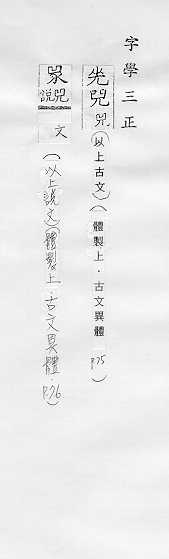 字學三正
兕
(以上古文)(體製上·古文異體 P.75)
說文
(以上說文)(體製上·古文異體·P.76)